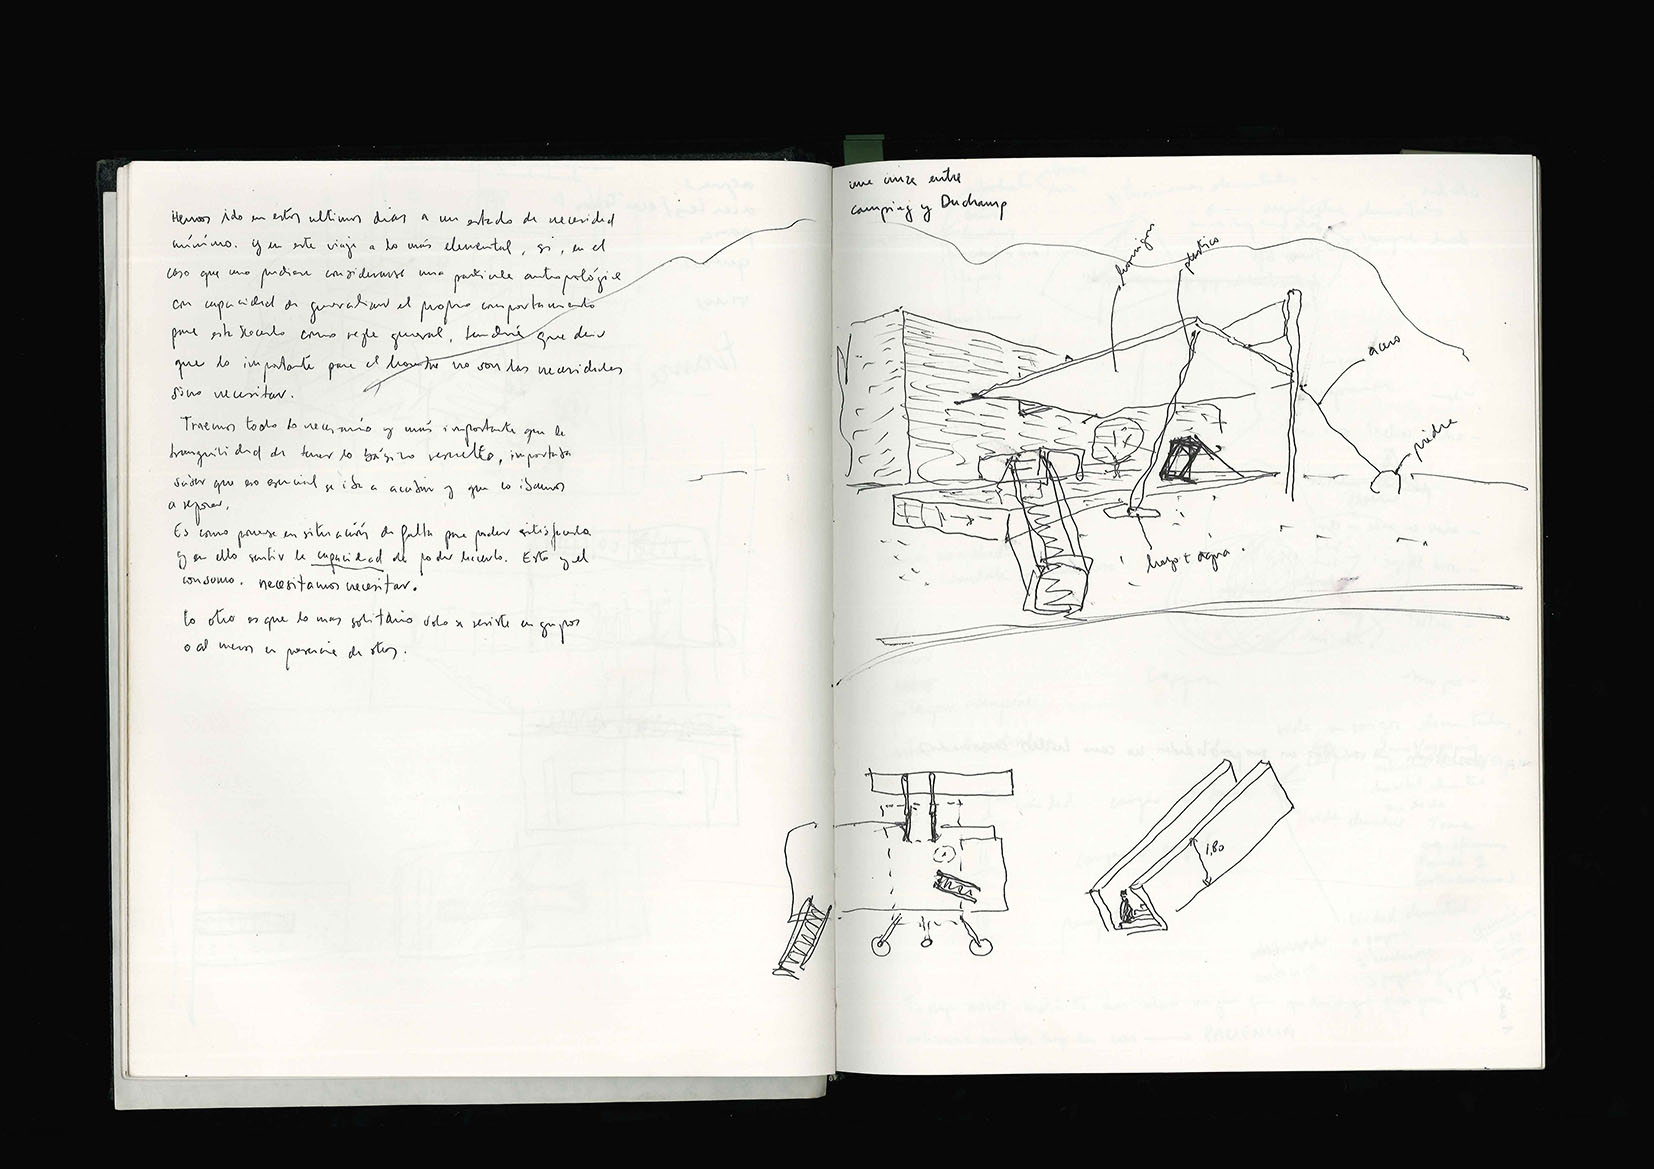 Hemos ido en estos ultimos dias a un estado de necesidad
mínimo. y en este viaje a lo más elemental, si, en el
caso que uno pudiera considerarse una partícula antropológica
con capacidad de generalizar el propio comportamiento
para establecerlo como regla general, tendría que decir
que lo importante para el hombre no son las necesidades
sino necesitar.
Traemos todo lo necesario y más importante que la
tranquilidad de tener lo básico resuelto, importaba
saber que eso esencial se iba a acabar y que lo íbamos
a reponer.
Es como ponerse en situación de falta para poder satisfacerla
y en ello sentir la capacidad de poder hacerlo. Esto y el
consumo. necesitamos necesitar.
Lo otro es que lo mas solitario solo se resiste en grupos
o al menos en presencia de otros.
una cruza entre
camping y Duchamp
hormigon
plastico
acero
piedra
agua.
1,80